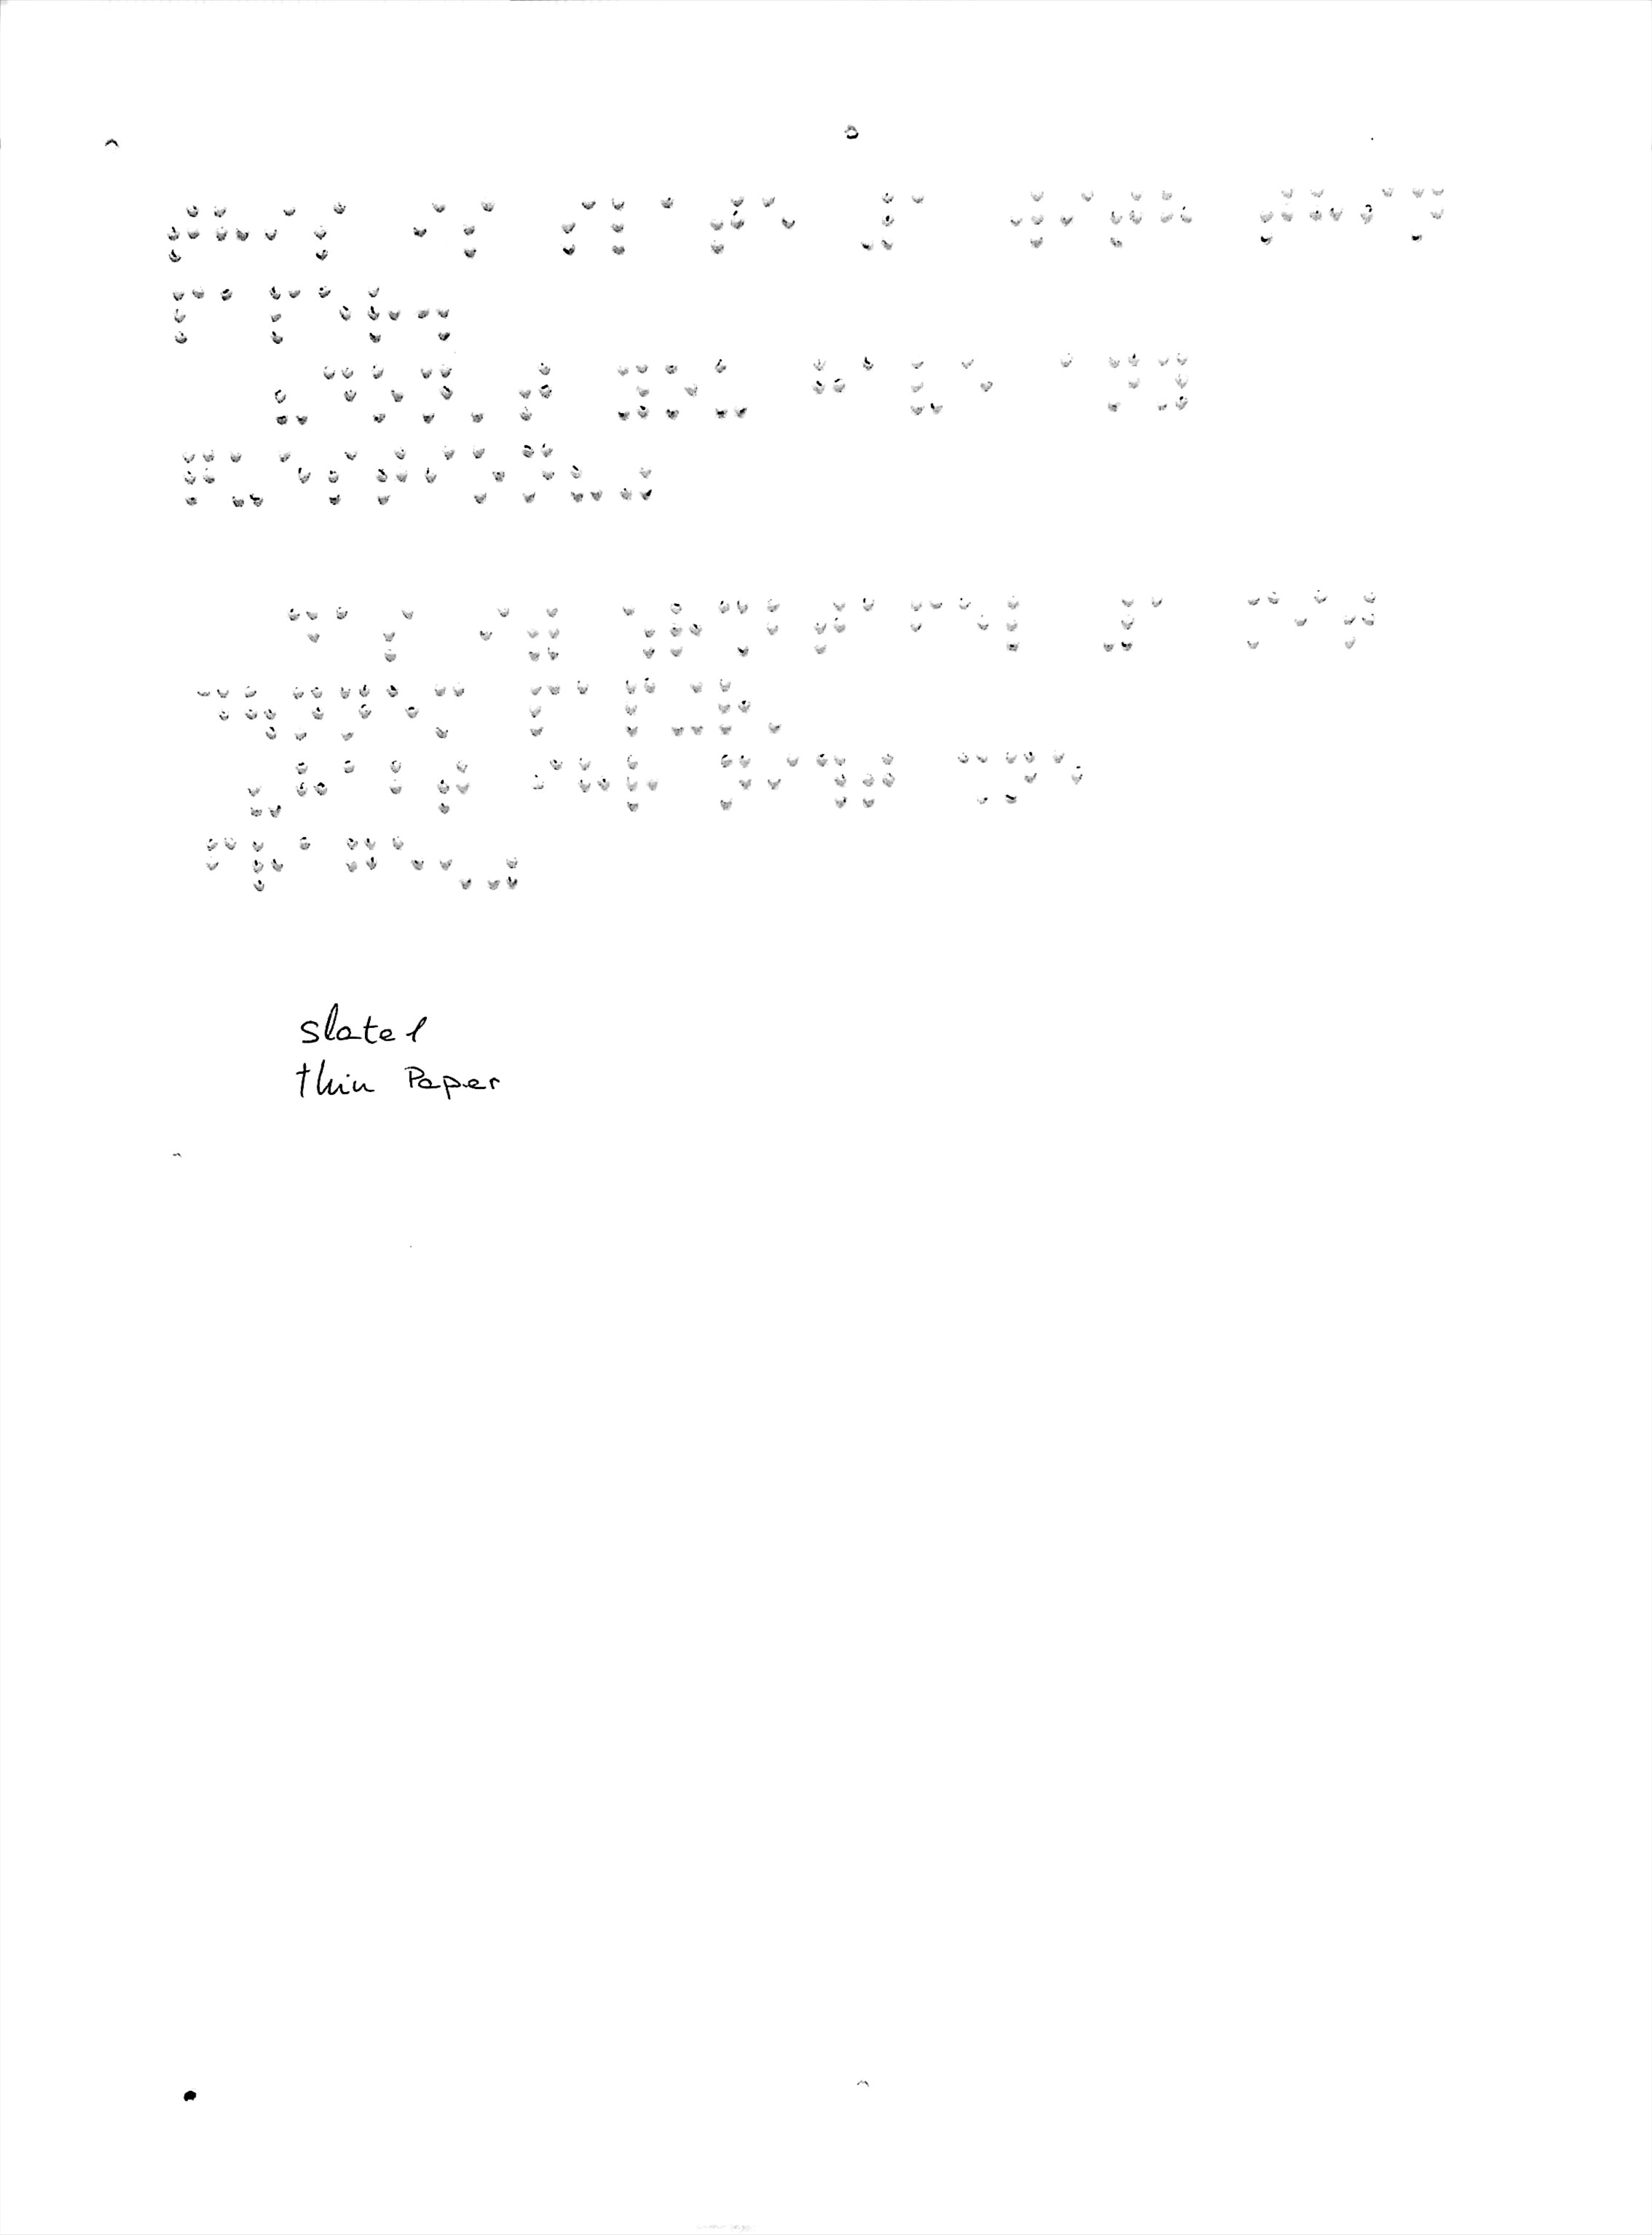 ⠞⠓⠊⠎ ⠊⠎ ⠎⠇⠁⠞⠑ ⠼⠁ ⠺⠊⠞⠓ ⠞⠓⠊⠝
⠏⠁⠏⠑⠗⠲
⠦⠙⠕⠝⠄⠞ ⠽⠕⠥ ⠓⠁⠧⠑ ⠁⠝⠽
⠟⠥⠑⠎⠞⠊⠕⠝⠦⠴
⠙⠁⠎ ⠊⠾ ⠱⠗⠩⠃⠞⠁⠋⠑⠇ ⠼⠁ ⠍⠊⠞
⠙⠳⠝⠝⠑⠍ ⠏⠁⠏⠬⠗⠄
⠦⠓⠁⠃⠞ ⠊⠓⠗ ⠝⠊⠹⠞ ⠩⠝⠑
⠋⠗⠁⠛⠑⠢⠴
Slate 1
thin Paper